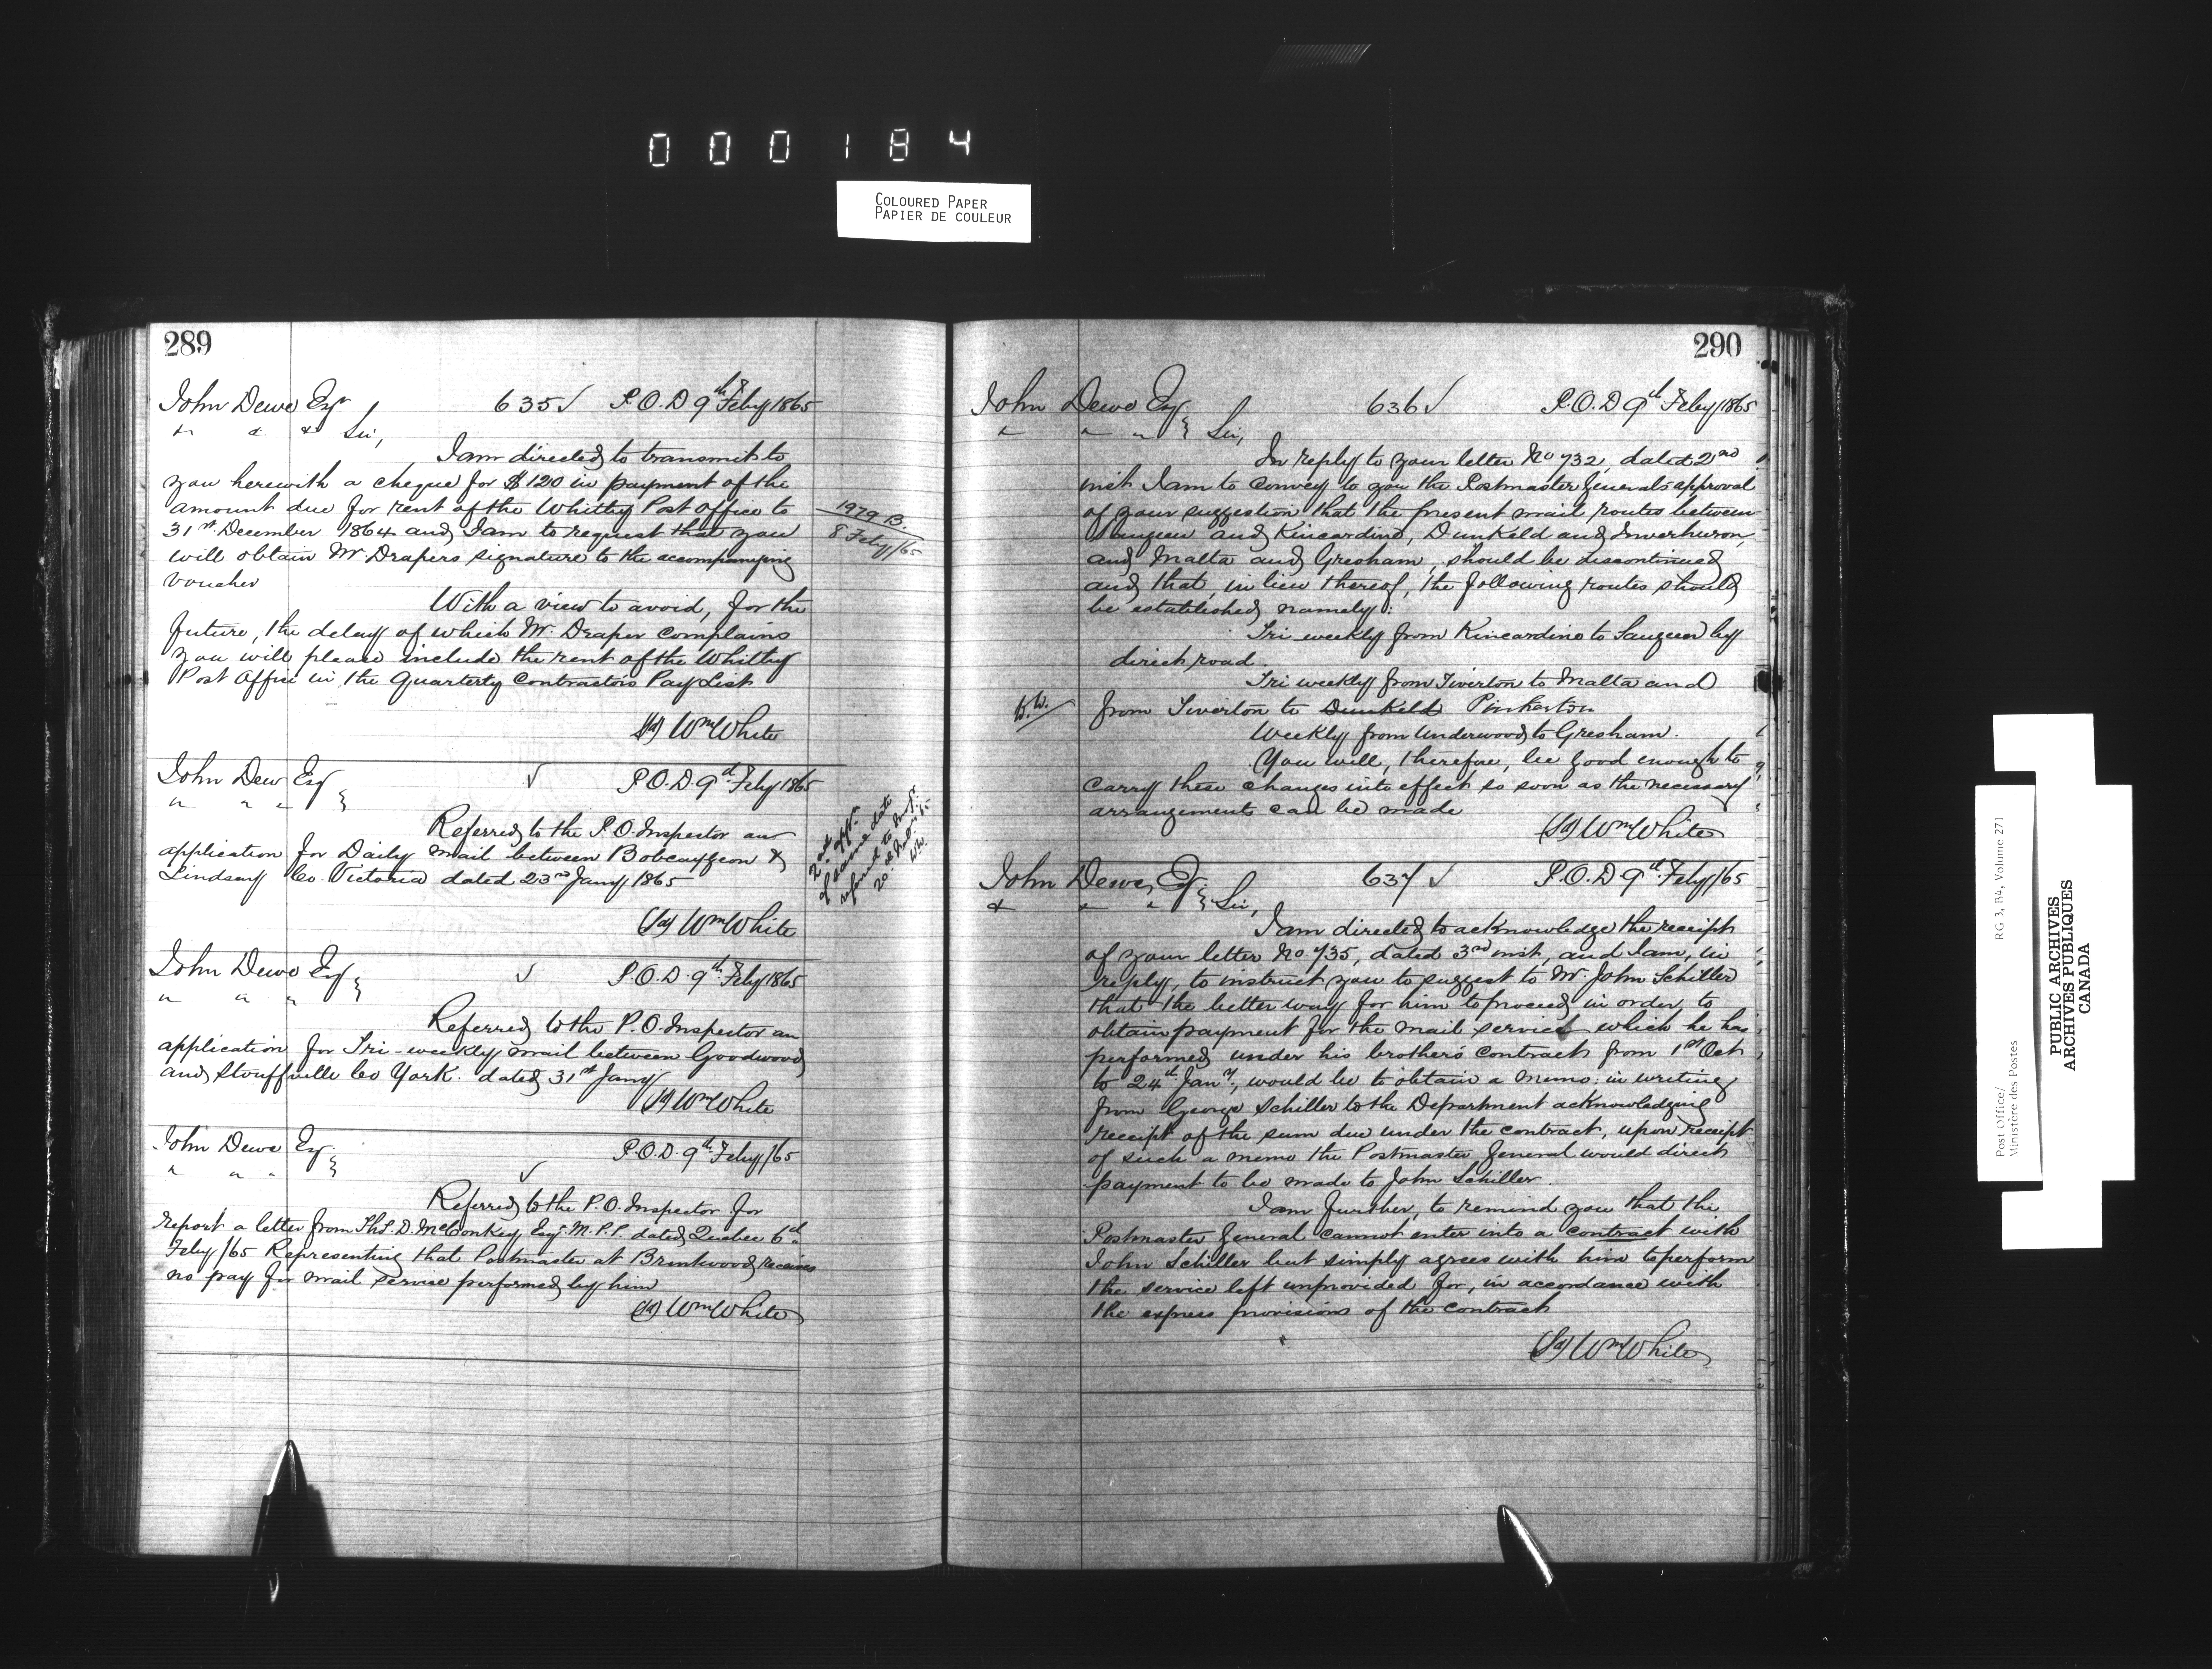 000184
COLOURED PAPER
PAPIER DE COULEUR
289
John Dewe Esqr 635 ✓ P.O.D 9th Feby 1865
" " " Sir,
I am directed to transmit to
you herewith a cheque for $120 in payment of the
amount due for rent of the Whitby Post Office to
31st December 1864 and I am to request that you
will obtain Mr Drapers signature to the accompanying
voucher
1979 B.
8 Feby/65
With a view to avoid, for the
future, the delay of which Mr. Draper complains
you will please include the rent of the Whitby
Post Office in the Quarterly Contractors Pay List
(Sd) Wm White
John Dew Esq ✓ P.O.D 9th Feby 1865
" " "
Referred to the P.O. Inspector an
application for Daily Mail between Bobcaygeon &
Lindsay Co. Victoria dated 23rd Jany 1865
(Sd) Wm White
2nd appn.
of same date
referred to Insp.
W.W.
John Dewe Esq ✓ P.O.D. 9th Feby 1865
" " "
Referred to the P.O. Inspector an
application for Tri-weekly mail between Goodwood
and Stouffville Co York. dated 31st Jany
(Sd) Wm White
John Dewe Esq. P.O.D. 9th Feby/65
" " " ✓
Referred to the P.O. Inspector for
report a letter from Ths. D. McConkey, Esq. M.P.P. dated Quebec 6th
Feby/65 Representing that Postmaster at Brentwood receives
no pay for mail service performed by him
(Sd) Wm White
290
John Dewe Esq 636 ✓ P.O.D 9th Feby/1865
" " " Sir,
In reply to your letter No 732, dated 2nd
inst I am to convey to you the Postmaster Generals approval
of your suggestion that the present mail routes between
Saugeen and Kincardine, Dunkeld and Inverhuron,
and Malta and Gresham, should be discontinued
and that, in lieu thereof, the following routes should
be established namely:
Tri weekly from Kincardine to Saugeen by
direct road.
Tri weekly from Tiverton to Malta and
W.W. from Tiverton to Dunkeld Pinkerton
Weekly from Underwood to Gresham.
You will, therefore, be good enough to
carry these changes into effect so soon as the necessary
arrangements can be made
(Sd) Wm White
John Dewe, Esq. 637 ✓ P.O.D 9th Feby/65
" " " Sir,
I am directed to acknowledge the receipt
of your letter No. 735, dated 3rd inst, and I am, in
reply, to instruct you to suggest to Mr. John Schiller
that the better way for him to proceed in order to
obtain payment for the mail service which he has
performed under his brother's contract from 1st Oct
to 24th Jany, would be to obtain a memo: in writing
from George Schiller to the Department acknowledging
receipt of the sum due under the contract, upon receipt
of such a memo the Postmaster General would direct
payment to be made to John Schiller.
I am further, to remind you that the
Postmaster General cannot enter into a contract with
John Schiller but simply agrees with him to perform
the service left unprovided for, in accordance with
the express provisions of the contract
(Sd) Wm White
Post Office/ RG 3, B4, Volume 271
Ministère des Postes
PUBLIC ARCHIVES
ARCHIVES PUBLIQUES
CANADA